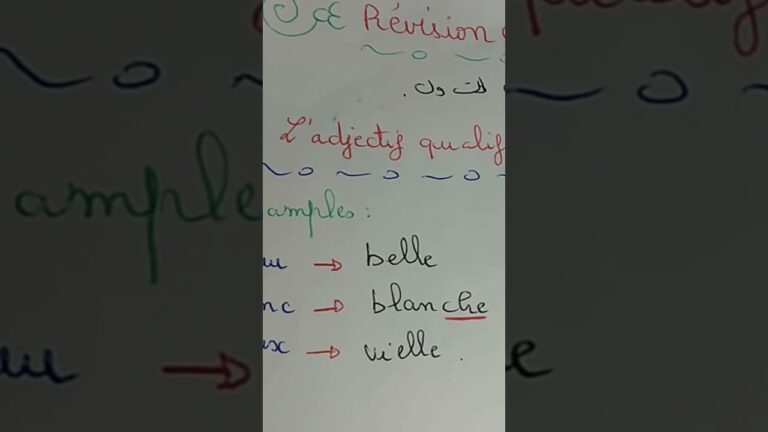 Révision
L'adjectif qualif
amples :
eu → belle
nc → blanche
ux → vielle .